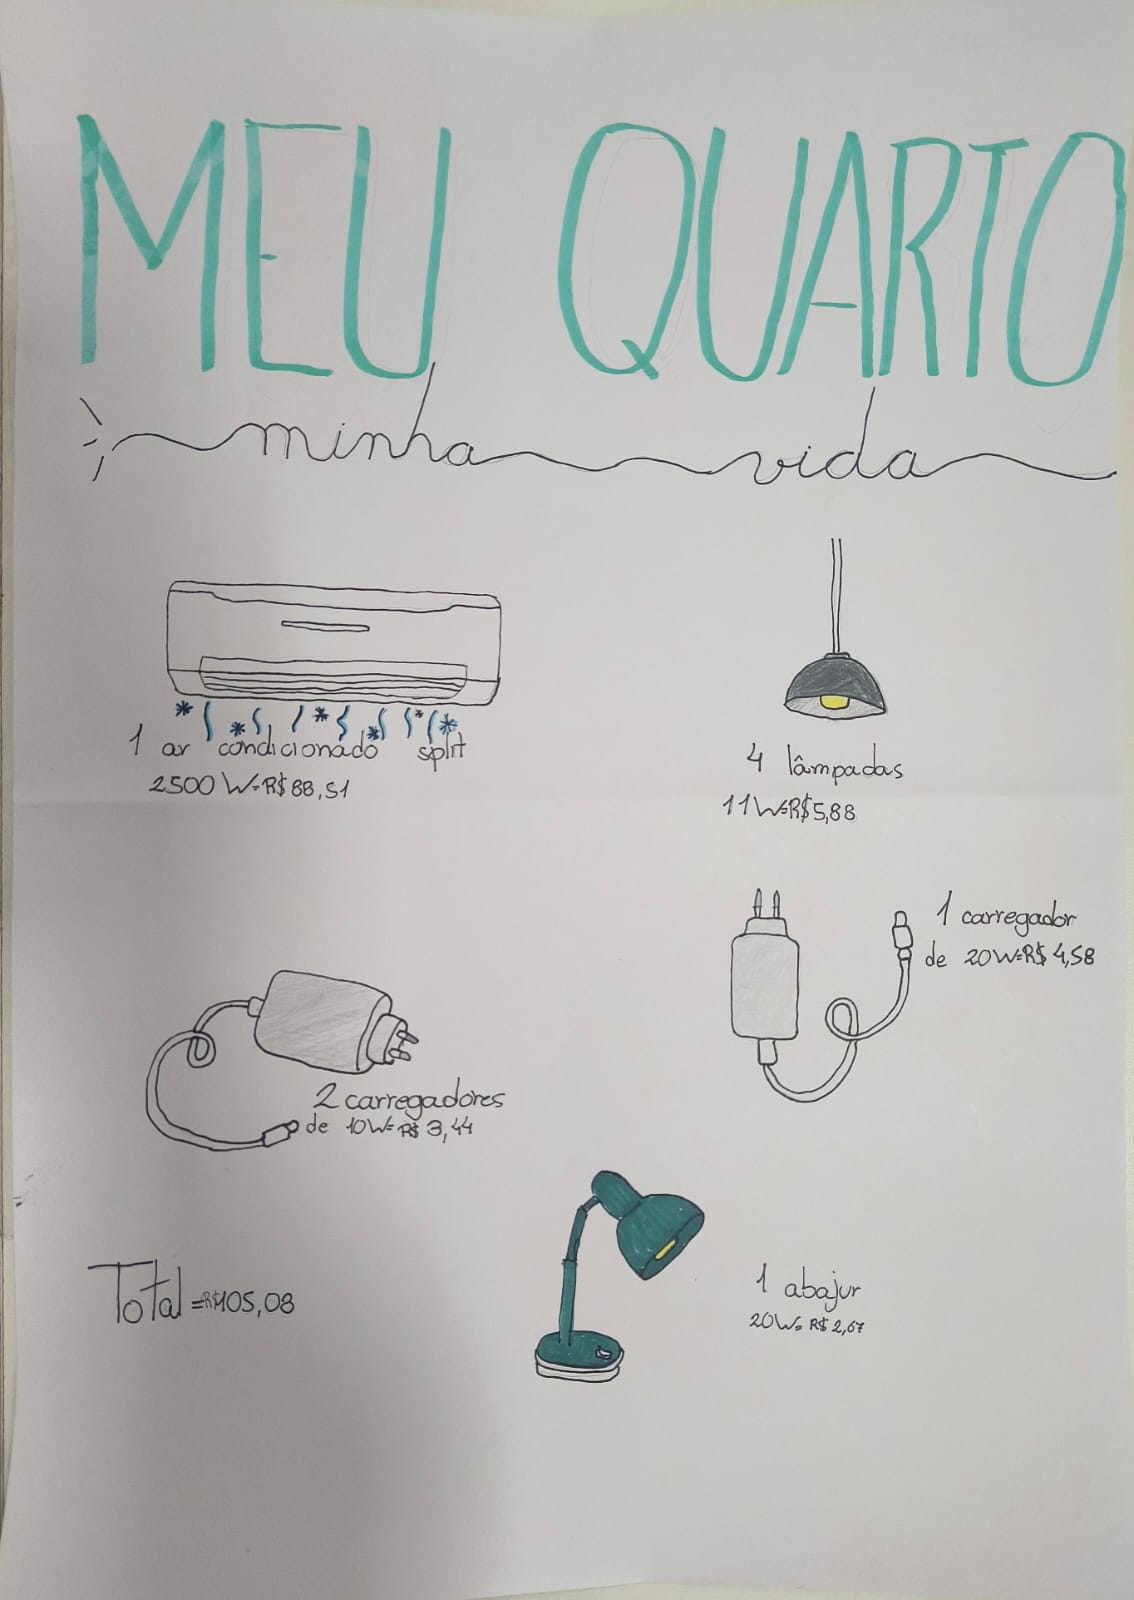 MEU QUARTO
minha vida
1 ar condicionado split
2500 W=R$88,51
4 lâmpadas
11W=R$5,88
1 carregador
de 20W=R$ 4,58
2 carregadores
de 10W= R$ 3,44
Total =R$105,08
1 abajur
20W= R$ 2,67